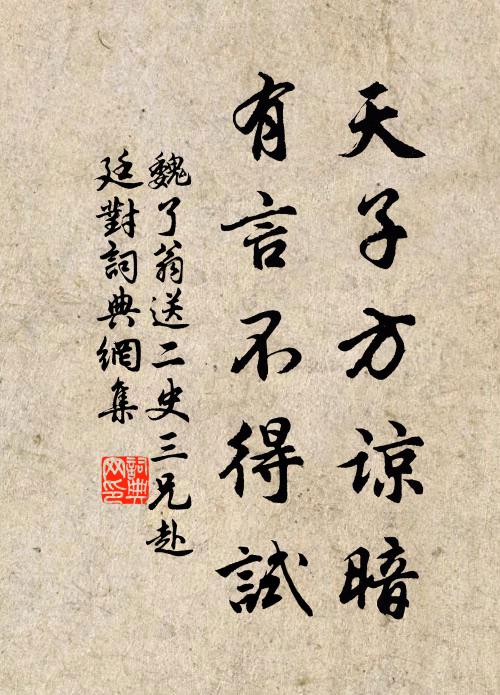 天子方諒暗
有言不得試
魏了翁送二史三兄赴
廷對詞典網集
詞典
网印